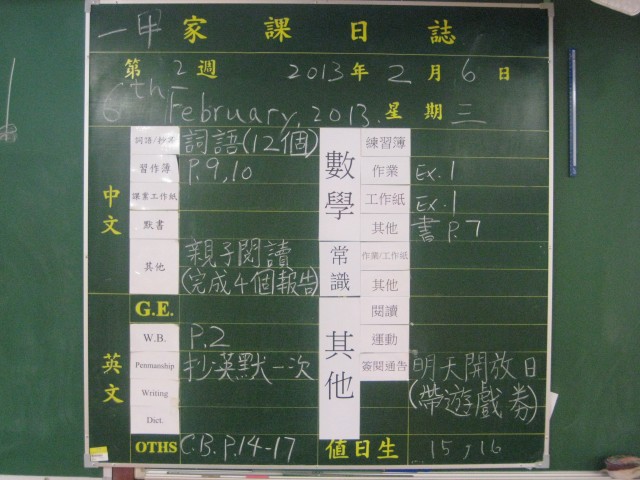 一甲家課日誌
第2週 2013年2月6日
6th February, 2013. 星期三
中文
詞語/抄寫 詞語(12個)
習作簿 P.9,10
課業工作紙
默書
其他 親子閱讀
(完成4個報告)
英文
G.E.
W.B. P.2
Penmanship 抄英默一次
Writing
Dict.
OTHS C.B. P.14-17
數學
練習簿
作業 Ex.1
工作紙 Ex.1
其他 書 P.7
常識
作業/工作紙
其他
其他
閱讀
運動
簽閱通告 明天開放日
(帶遊戲券)
值日生 15,16